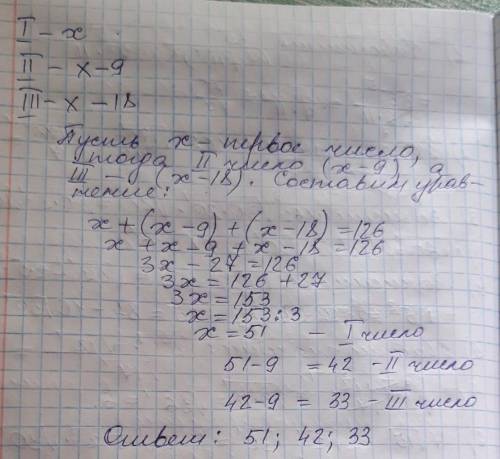 I - x
II - x - 9
III - x - 18
Пусть x - первое число,
тогда II число (x - 9), а
III - (x - 18). Составим урав-
нение:
x + (x - 9) + (x - 18) = 126
x + x - 9 + x - 18 = 126
3x - 27 = 126
3x = 126 + 27
3x = 153
x = 153 : 3
x = 51 - I число
51 - 9 = 42 - II число
42 - 9 = 33 - III число
Ответ: 51; 42; 33